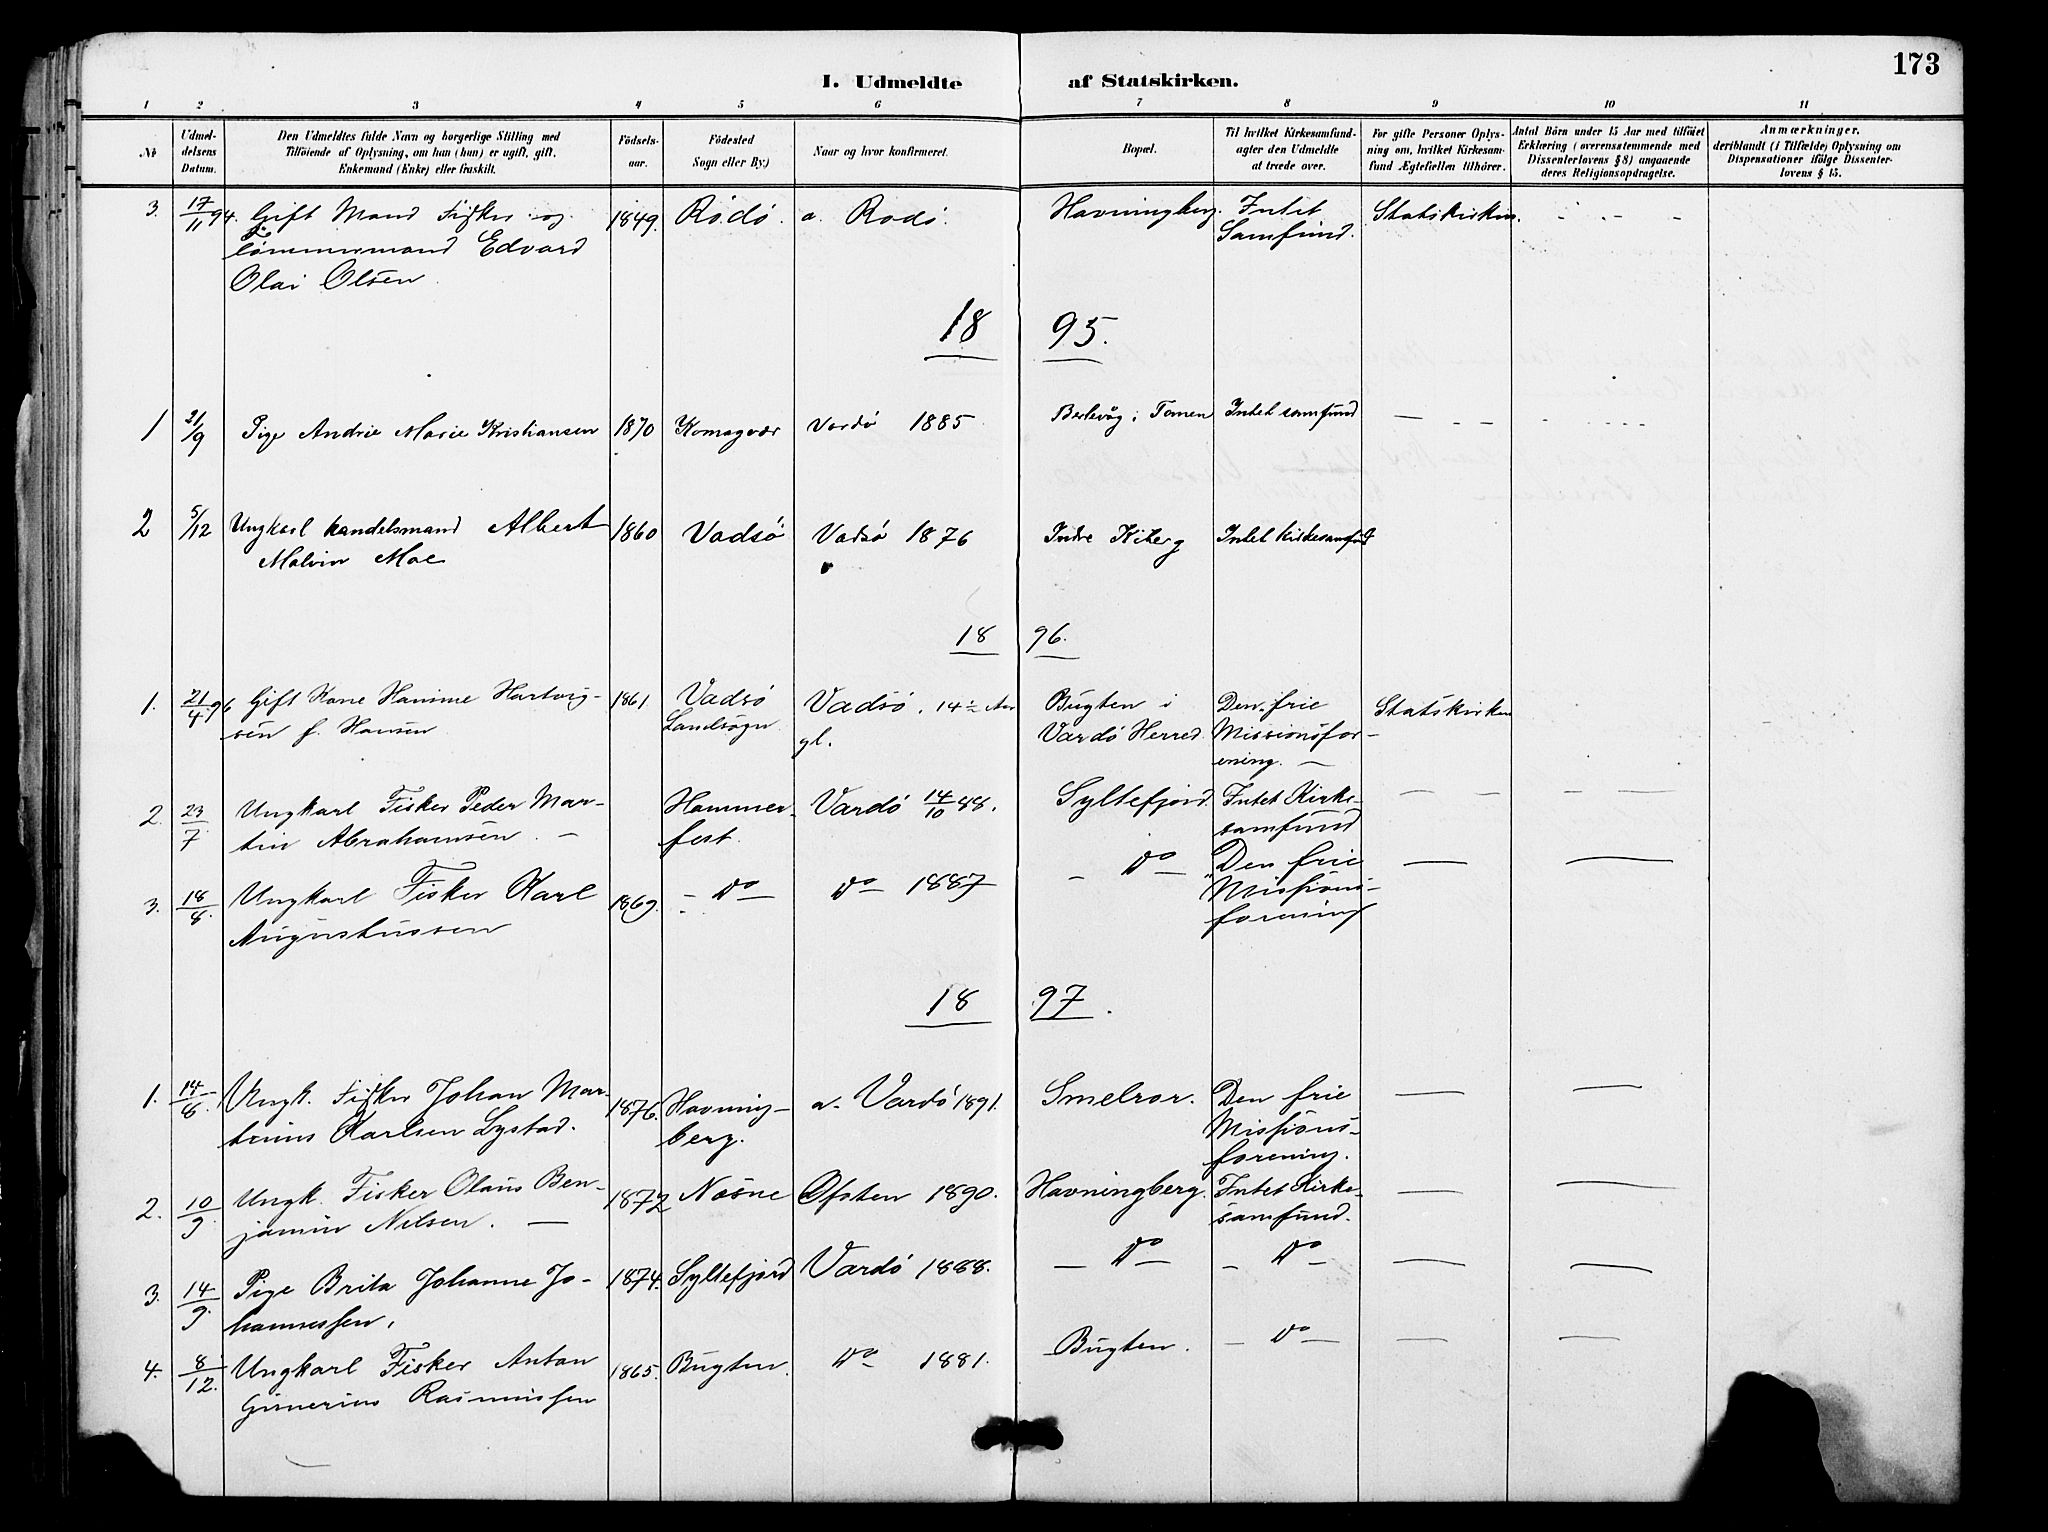 173
I. Udmeldte af Statskirken.
1 2 3 4 5 6 7 8 9 10 11
№
Udmel-
delsens
Datum.
Den Udmeldtes fulde Navn og borgerlige Stilling med
Tilföiende af Oplysning, om han (hun) er ugift, gift,
Enkemand (Enke) eller fraskilt.
Födsels-
aar.
Födested
Sogn eller By.)
Naar og hvor konfirmeret.
Bopæl.
Til hvilket Kirkesamfund-
agter den Udmeldte
at træde over.
For gifte Personer Oplys-
ning om, hvilket Kirkesam-
fund Ægtefællen tilhörer.
Antal Börn under 15 Aar med tilföiet
Erklæring (overensstemmende med
Dissenterlovens § 8) angaaende
deres Religionsopdragelse.
Anmærkninger,
deriblandt (i Tilfælde) Oplysning om
Dispensationer ifölge Dissenter-
lovens § 15.
3. 17/11 94. Gift Mand Fisker og 1849. Rödö. a. Rödö. Havningberg. Intet Statskirken. - - -
Tömmermand Edvard Samfund.
Olai Olsen
18 95.
1 21/9 Pige Andrie Marie Kristiansen 1870 Komagvær Vardö 1885 Berlevåg i Tanen Intet samfund — - - - - - -
2 5/12 Ungkarl handelsmand Albert 1860 Vadsö Vadsö 1876 Indre Kiberg Intet kirkesamfund
Malvin Moe
18 96.
1. 21/4 96 Gift Kone Hanine Hartvig- 1861. Vadsö Vadsö. 14½ Aar Bugten i Den frie Statskirken
sen f. Hansen Landsogn gl. Vardö Herred Missionsfor-
ening. —
2. 23/7. Ungkarl Fisker Peder Mar- Hammer- Vardö 14/10 88. Syltefjord. Intet Kirke- — — — —
tin Abrahamsen. — fest. samfund
3. 18/8. Ungkarl Fisker Karl 1869. - Do — Do — 1887 — Do — Den frie — —
Augustussen Missions-
forening
18 97.
1. 14/8. Ungk. Fisker Johan Mar- 1876. Havning- a. Vardö 1891. Smelror. Den frie — —
tinius Karlsen Lystad. berg. Missions-
forening.
2. 10/9. Ungk. Fisker Olaus Ben- 1872 Næsne Ofoten 1890. Havningberg. Intet Kirke- — —
jamin Nilsen. — samfund.
3. 14/9. Pige Brita Johanne Jo- 1874. Syltefjord Vardö 1888. — Do — — Do — — —
hannessen.
4. 8/12. Ungkarl Fisker Anton 1865. Bugten. Do — 1881. Bugten. — Do — — —
Gunerius Rasmussen